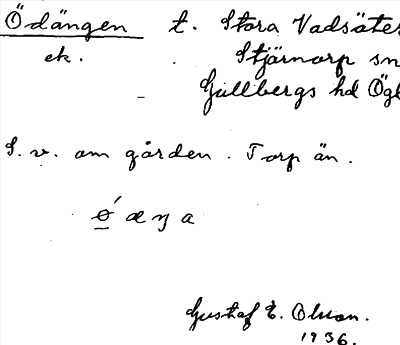 Ödängen t. Stora Vadsätes
ek. Stjärnorp sn
Gullbergs hd Ögl
S. v. om gården. Torp än.
ǿ æŋa
Gustaf E. Olson.
1936.